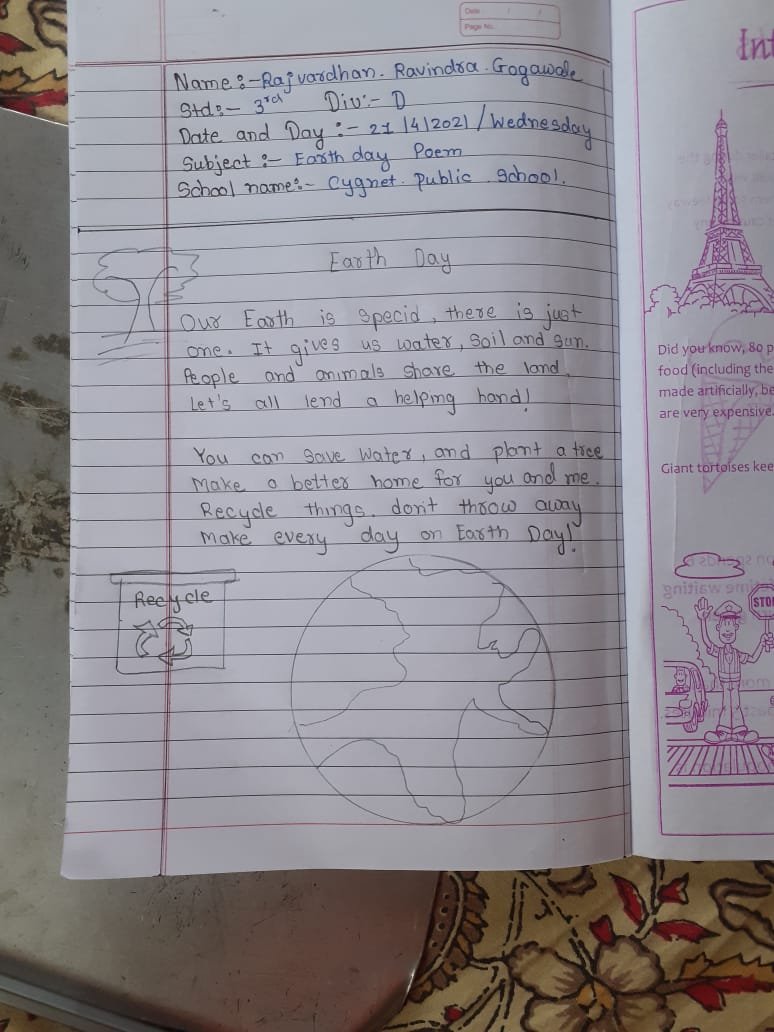 Date / /
Page No.
Name:- Rajvardhan. Ravindra. Gogawale
Std:- 3rd Div:- D
Date and Day :- 21/4/2021/Wednesday
Subject :- Earth day Poem
School name:- Cygnet. public. School.
Earth Day
Our Earth is specid, there is just
one. It gives us water, soil and sun.
People and animals share the land.
Let's all lend a helping hand!
You can save water, and plant a tree
Make a better home for you and me.
Recycle things. don't throw away
Make every day on Earth Day!
Recycle
Int
Did you know, 80 p
food (including the
made artificially, be
are very expensive.
Giant tortoises kee
STO